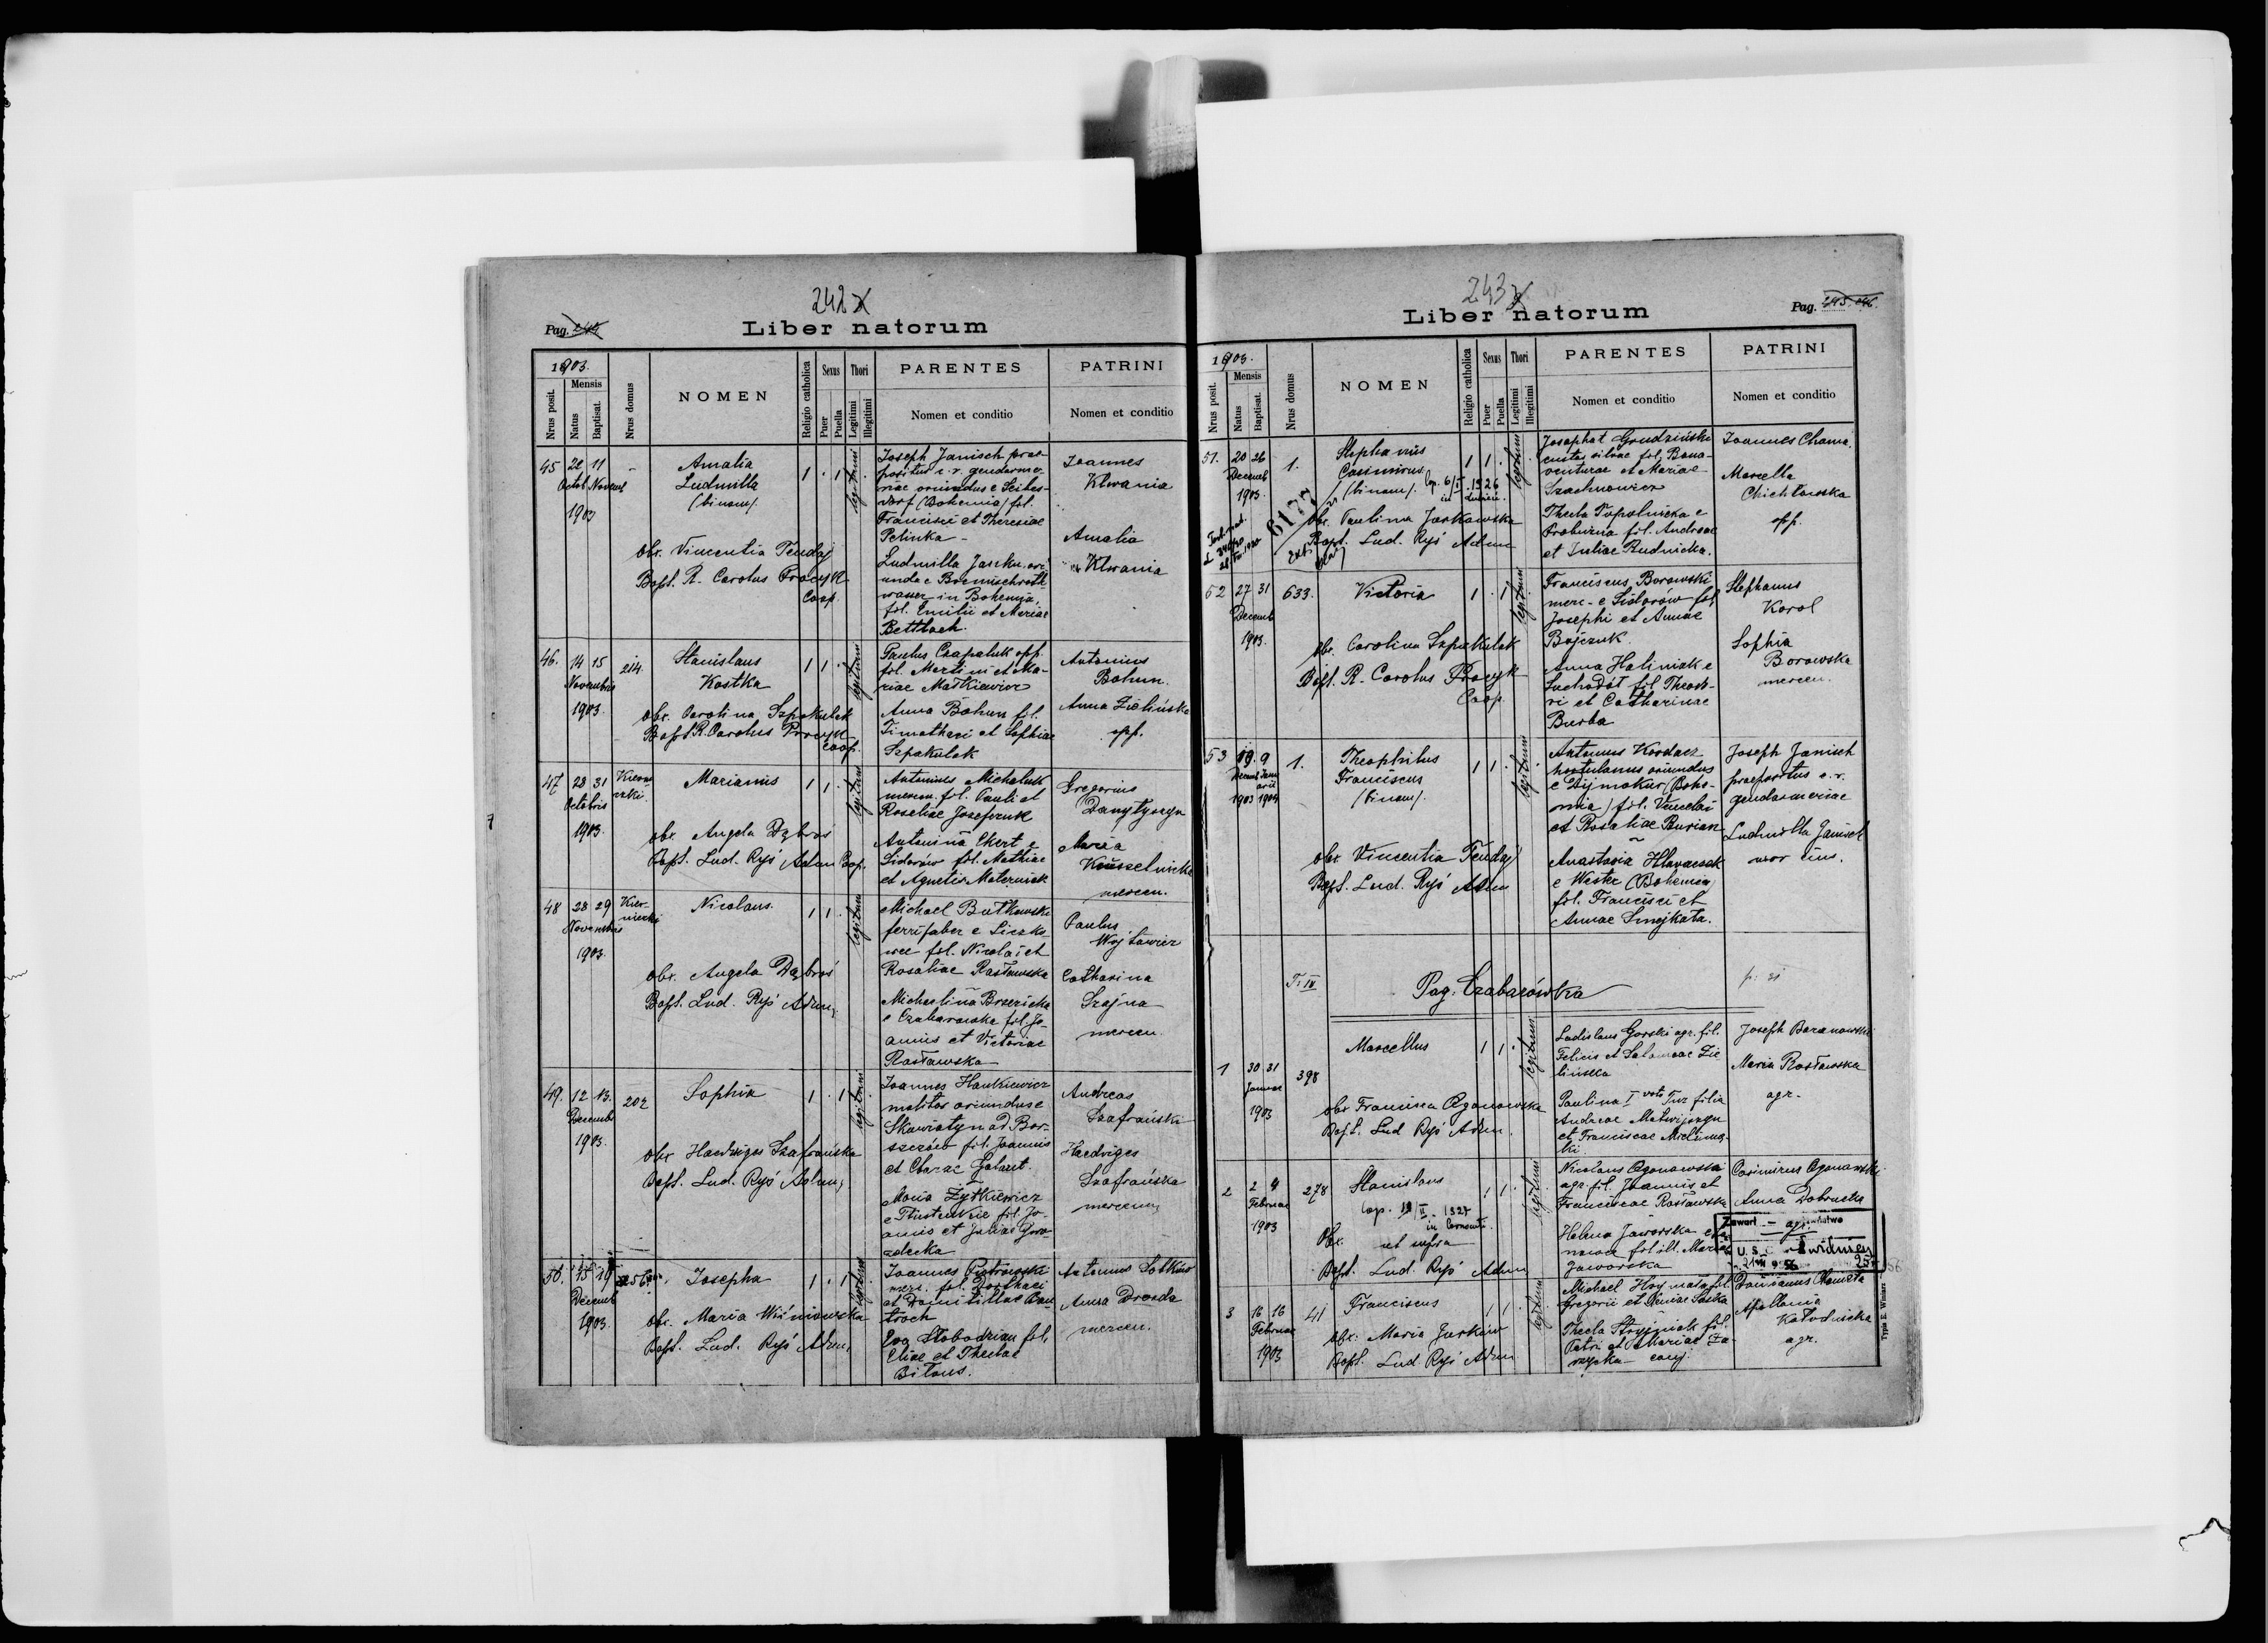 242
Pag. 244
Liber natorum
1903.
Nrus posit.
Mensis
Natus
Baptisat.
Nrus domus
NOMEN
Religio catholica
Sexus
Puer
Puella
Thori
Legitimi
Illegitimi
PARENTES
Nomen et conditio
PATRINI
Nomen et conditio
45 22 11
Octob. Novemb
1903
Amalia
Ludmilla
(binom).
1 . 1
legitimi
obs. Vincentia Tendaj
Bapt. R. Carolus Procyk
Coop.
Joseph Janisch prae-
positus c. r. gendarme-
riae oriundus e Seibes-
dorf (Bohemia) fil.
Francisci et Theresiae
Petinka -
Ludmilla Janku ori
unda e Boemischroth
wasser in Bohemia,
fil. Emilii et Mariae
Bettlach.
Joannes
Klwania
Amalia
Klwania
46. 14 15
Novembris
1903.
214
Stanislaus
Kostka
1 1 .
legitimi
obs. Carolina Szpakulak
Bapt R. Carolus Procyk
coop.
Paulus Czapaluk opp.
fil. Martini et Ma-
riae Małkiewicz
Anna Bohun fil.
Timothaei et Sophiae
Szpakulak
Antonius
Bohun.
Anna Zielińska
opp.
47 28 31
Octobris
1903.
Marianus
1 1 .
legitimi
obs. Angela Dąbroś
Bapt. Lud. Ryś Adm Coop.
Antonius Michaluk
mercen. fil. Pauli et
Rosaliae Josefczuk
Antonina Ekert e
Sidorow fil. Mathiae
et Agnetis Materniak
Gregorius
Danyłyszyn
Maria
mercen.
48 28 29
Novembris
1903.
Nicolaus.
1 1 .
legitimi
obs. Angela Dąbroś
Bapt. Lud. Ryś Adm.
Michael Butkowski
ferrifaber e Liczko-
wce fil. Nicolai et
Rosaliae Rasławska
Michaelina Brzezicka
e Czabarowka fil. Jo-
annis et Victoriae
Rasławska
Paulus
Wojtowicz
Catharina
Szajna
mercen.
49. 12 13.
Decemb
1903.
202
Sophia
1 . 1
legitimi
obs Haedviges Szafrańska
Bapt. Lud. Ryś Adm.
Joannes Hankiewicz
molitor oriundus e
Skowiatyn ad Bor-
szczów fil. Joannis
et Clarae
Maria Żytkiewicz
e Tłusteńkie fil. Jo-
annis et Juliae Gro-
adecka
Andreas
Szafrański
Haedviges
Szafrańska
mercen.
50. 15 19
Decemb
1903.
Josepha
1 . 1
legitimi
obs. Maria Wiśniowska
Bapt. Lud. Ryś Adm.
Joannes Piotrowski
merc. fil. Dorothaei
et Domitillae
Eva Słobodzian fil.
Eliae et Theclae
Bitous.
Antonius Sołtkiw
Anna Drozda
mercen.
243
Liber natorum
Pag. 245. 246.
1903.
Nrus posit.
Mensis
Natus
Baptisat.
Nrus domus
NOMEN
Religio catholica
Sexus
Puer
Puella
Thori
Legitimi
Illegitimi
PARENTES
Nomen et conditio
PATRINI
Nomen et conditio
51. 20 26
Decemb
1903.
1.
Stephanus
Casimirus
(binom). Cop. 6/II 1926
1 1 .
legitimi
6177
obs. Paulina Jarkowska
Bapt. Lud. Ryś Adm
Josaphat Grudziński
custos silvae fil. Bona-
venturae et Mariae
Szachnowicz
Thecla Topolnicka e
Probużna fil. Andreae
et Juliae Rudnicka.
Joannes Chama.
Marcella
Chichłowska
opp.
52 27 31
Decemb
1903.
633.
Victoria
1 . 1
legitimi
obs. Carolina Szpakulak
Bapt. R. Carolus Procyk
Coop.
Franciscus Borowski
merc. e Sidorów fil.
Josephi et Annae
Bojczuk
Anna Haliniak e
Suchodół fil Theodo-
ri et Catharinae
Burba
Stephanus
Karol
Sophia
Borowska
mercen.
53 19. 9
Decemb Janu
arii
1903 1904
1.
Theophilus
Franciscus
(binom).
1 1 .
legitimi
obs Vincentia Tendaj
Bapt. Lud. Ryś Adm
Antonius Kordacz
hortulanus oriundus
e Dymokur (Bohe-
mia) fil. Venceslai
et Rosaliae Burian
Anastasia Hlavacsek
e Westec (Bohemia)
fil. Francisci et
Annae Smejkata.
Joseph Janisch
praepositus c. r.
gendarmeriae
Ludmilla Janisch
uxor eius.
T. IV
Pag. Czabarówka
p. 31
1 30 31
Januar
1903
398
Marcellus
1 1 .
legitimi
obs Francisca Oganowska
Bapt. Lud Ryś Adm.
Ladislaus Gorski agr. fil.
Felicis et Salomeae Zie
lińska
Paulina I voto Tur filia
Andreae Matwijczyn
et Franciscae
Joseph Baranowski
Maria Rasławska
agr.
2 2 4
Februar
1903
278
Stanislaus
Cop. 19/II. 1927
1 1 .
legitimi
Obs. ut supra
Bapt. Lud. Ryś Adm
Nicolaus Oganowski
agr. fil. Joannis et
Franciscae Rasławska
Helena Jaworska
fil ill. Mariae
Jaworska
Casimirus Oganowski
Anna Dobrucka
agr.
Zawarł
U. S. C. Świdnicy
3 16 16
Februar
1903
41
Franciscus
1 1 .
legitimi
obs. Maria Jurków
Bapt. Lud Ryś Adm
Michael Hoymała fil.
Gregorii et Xeniae Saska
Thecla Stryjniak fil.
Patri et Mariae Za-
rzycka conj.
Damianus
Apollonia
Kałodnicka
agr.
Typis E. Winiarz